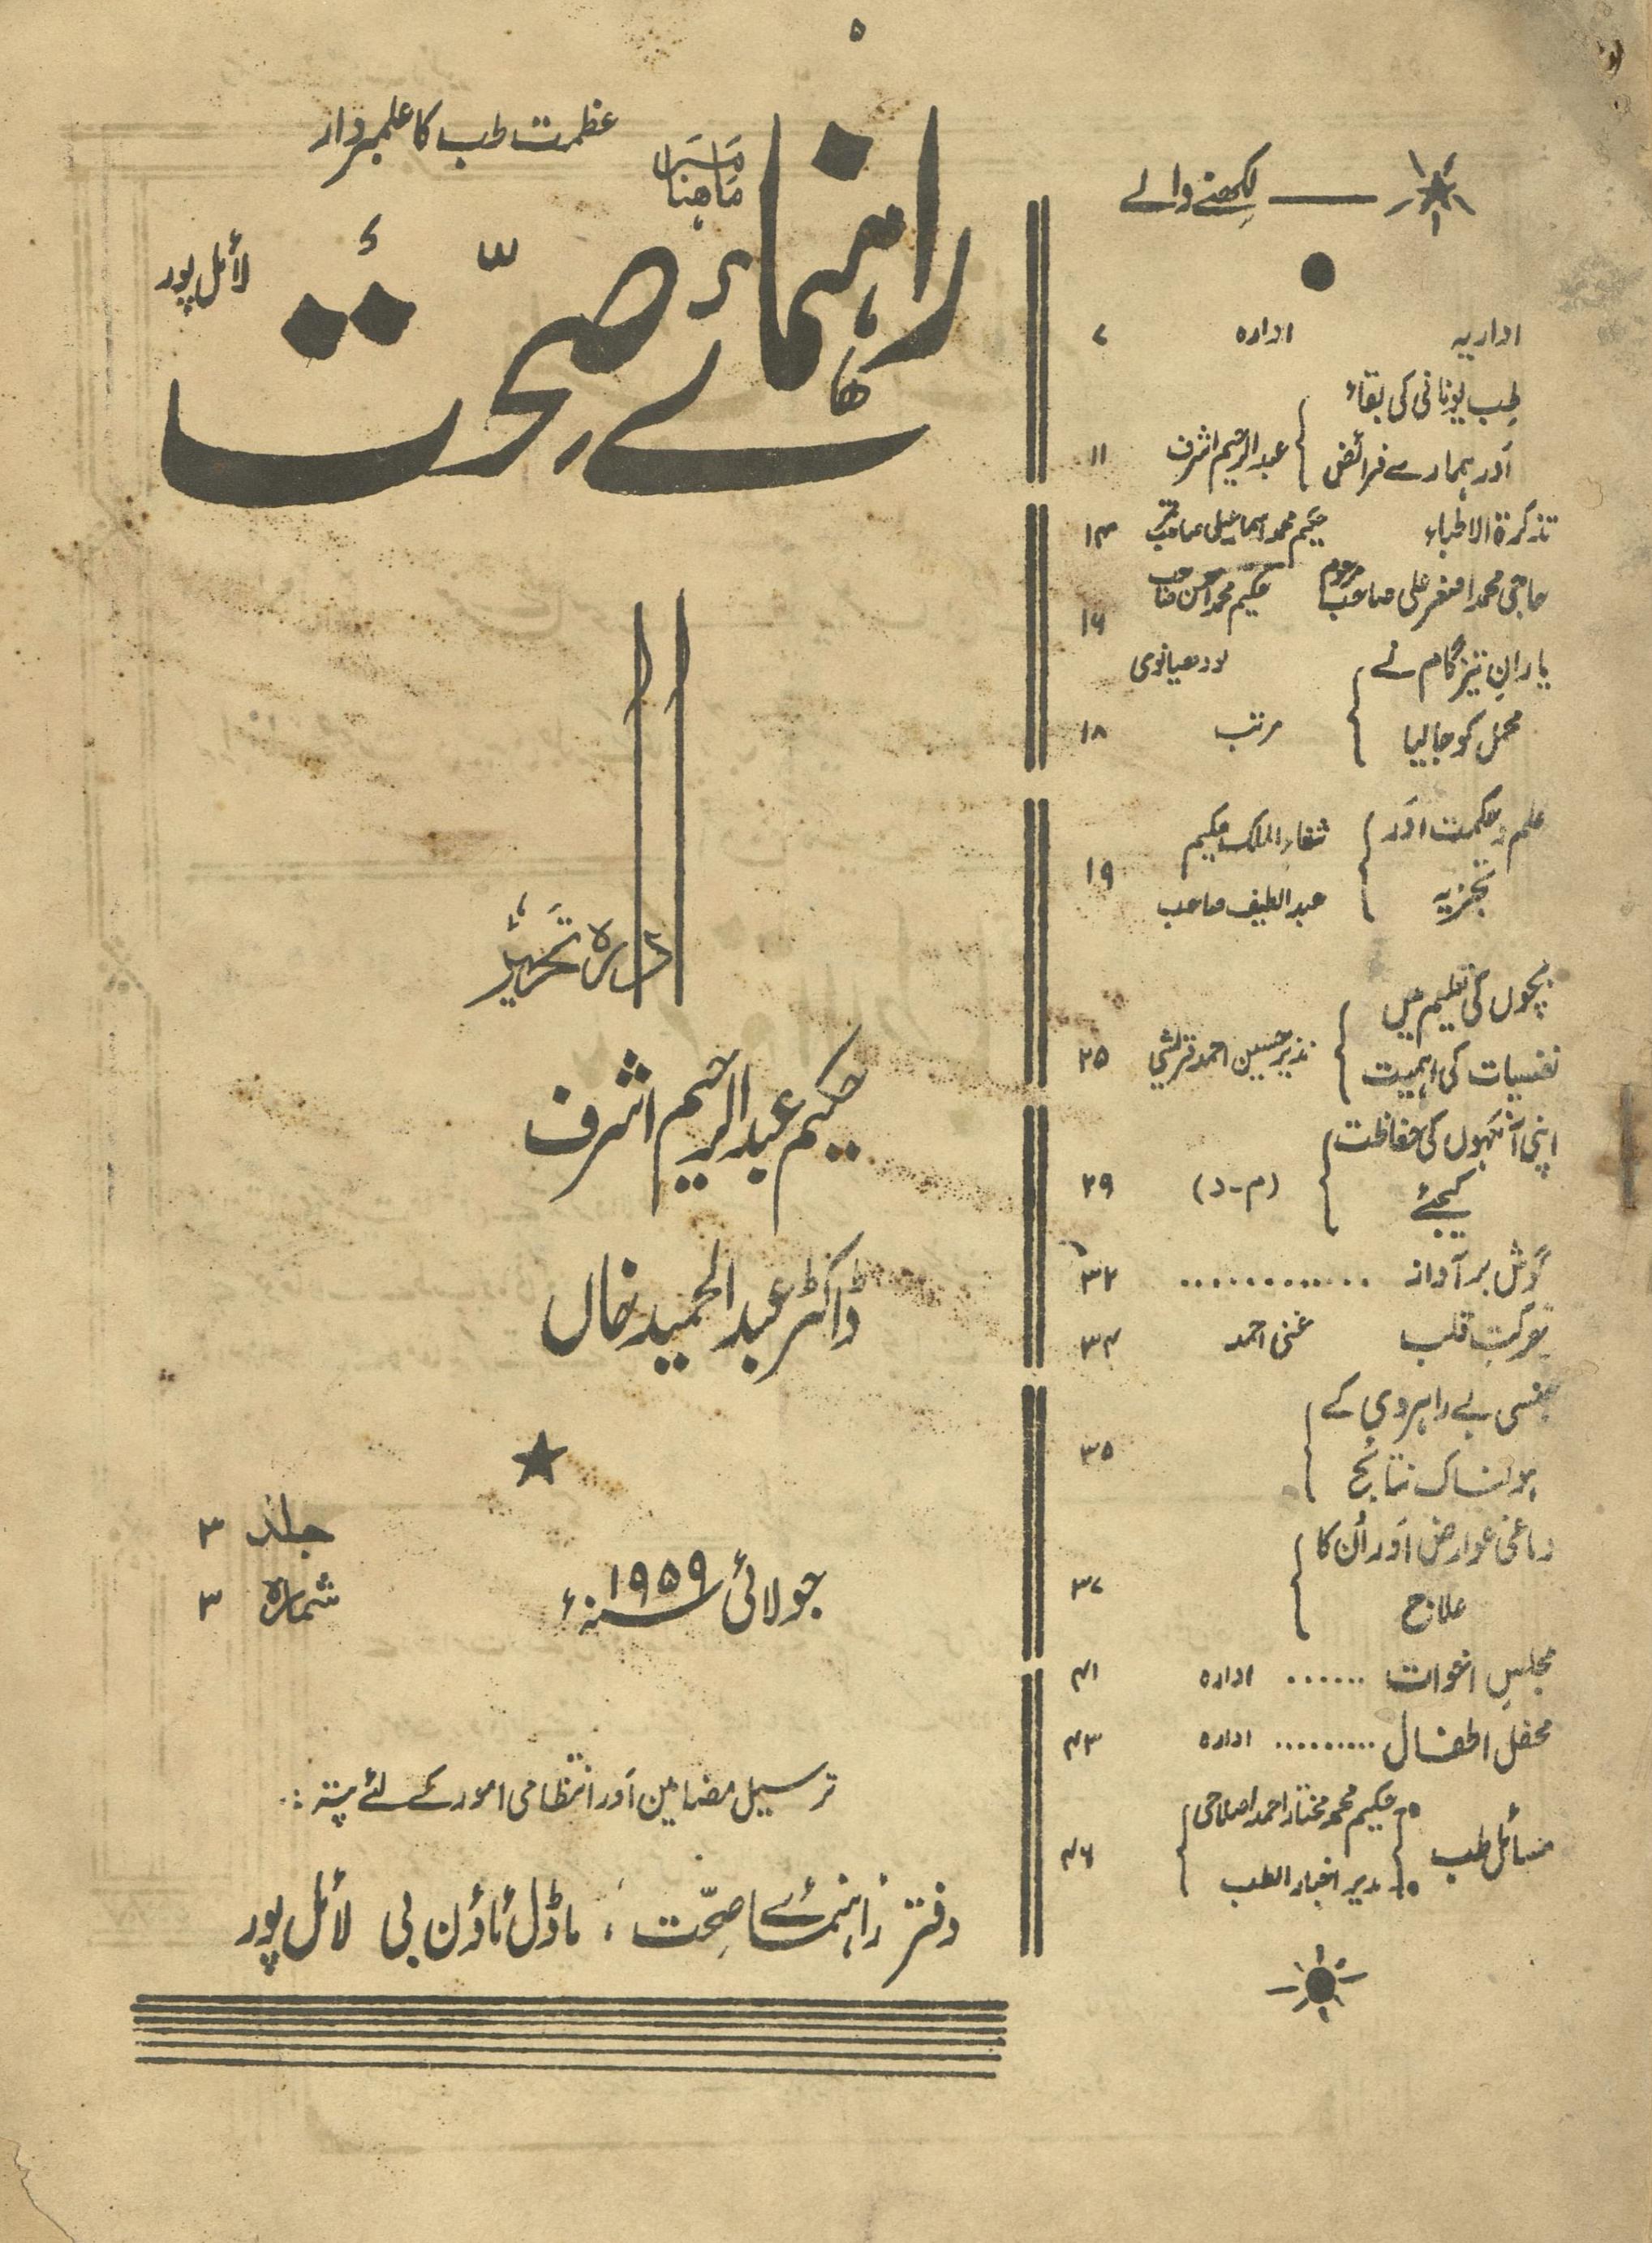 ۵
لکھنے والے
اداریہ ادارہ ۷
طِب یونانی کی بقاء
اَور ہمارے فرائض عبدالرحیم اشرف ۱۱
تذکرۃ الاطباء حکیم محمد اسماعیل صاحب ۱۴
حاجی محمد اصغر علی صاحب مرحوم حکیم محمد احسن صاحب ۱۶
لودھیانوی
یارانِ تیز گام نے
محمل کو جا لیا مرتب ۱۸
علم و حکمت اَور شفاء الملک حکیم
تجزیہ عبداللطیف صاحب ۱۹
بچوں کی تعلیم میں
نفسیات کی اہمیت نذیر حسین احمد قریشی ۲۵
اپنی آنکھوں کی حفاظت
کیجئے (م-د) ۲۹
گوش بر آواز ............ ۳۲
حرکتِ قلب غنی احمد ۳۴
جنسی بے راہروی کے
ہولناک نتائج ۳۵
دماغی عوارض اَور اُن کا
علاج ۳۷
مجلسِ اخوات ...... ادارہ ۴۱
محفلِ اطفال ......... ادارہ ۴۳
مسائل طب حکیم محمد مختار احمد اصلاحی
مدیر اخبار الطب ۴۶
عظمت طب کا علمبردار
ماھنامہ
راہنمائے صحّت
لائل پور
ادارہ تحریر
حکیم عبدالرحیم اشرف
ڈاکٹر عبدالحمید خاں
جلد ۳
شمارہ ۳
جولائی سنہ ۱۹۵۹ء
ترسیل مضامین اَور انتظامی امور کے لئے پتہ :۔
دفتر راہنمائے صحّت، ماڈل ٹاؤن بی لائل پور